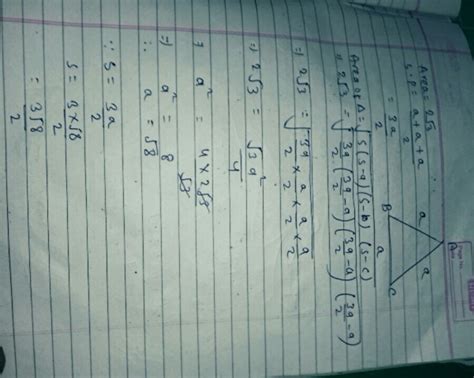 Area = 2√3
S.P = a + a + a / 2
= 3a / 2
A
B
C
a
a
a
Area of Δ = √s(s-a)(s-b)(s-c)
⇒ 2√3 = √3a/2 (3a/2 - a) (3a/2 - a) (3a/2 - a)
⇒ 2√3 = √3a/2 × a/2 × a/2 × a/2
⇒ 2√3 = √3a² / 4
⇒ a² = 4 × 2√3 / √3
⇒ a² = 8
∴ a = √8
∵ S = 3a / 2
S = 3 × √8 / 2
= 3√8 / 2